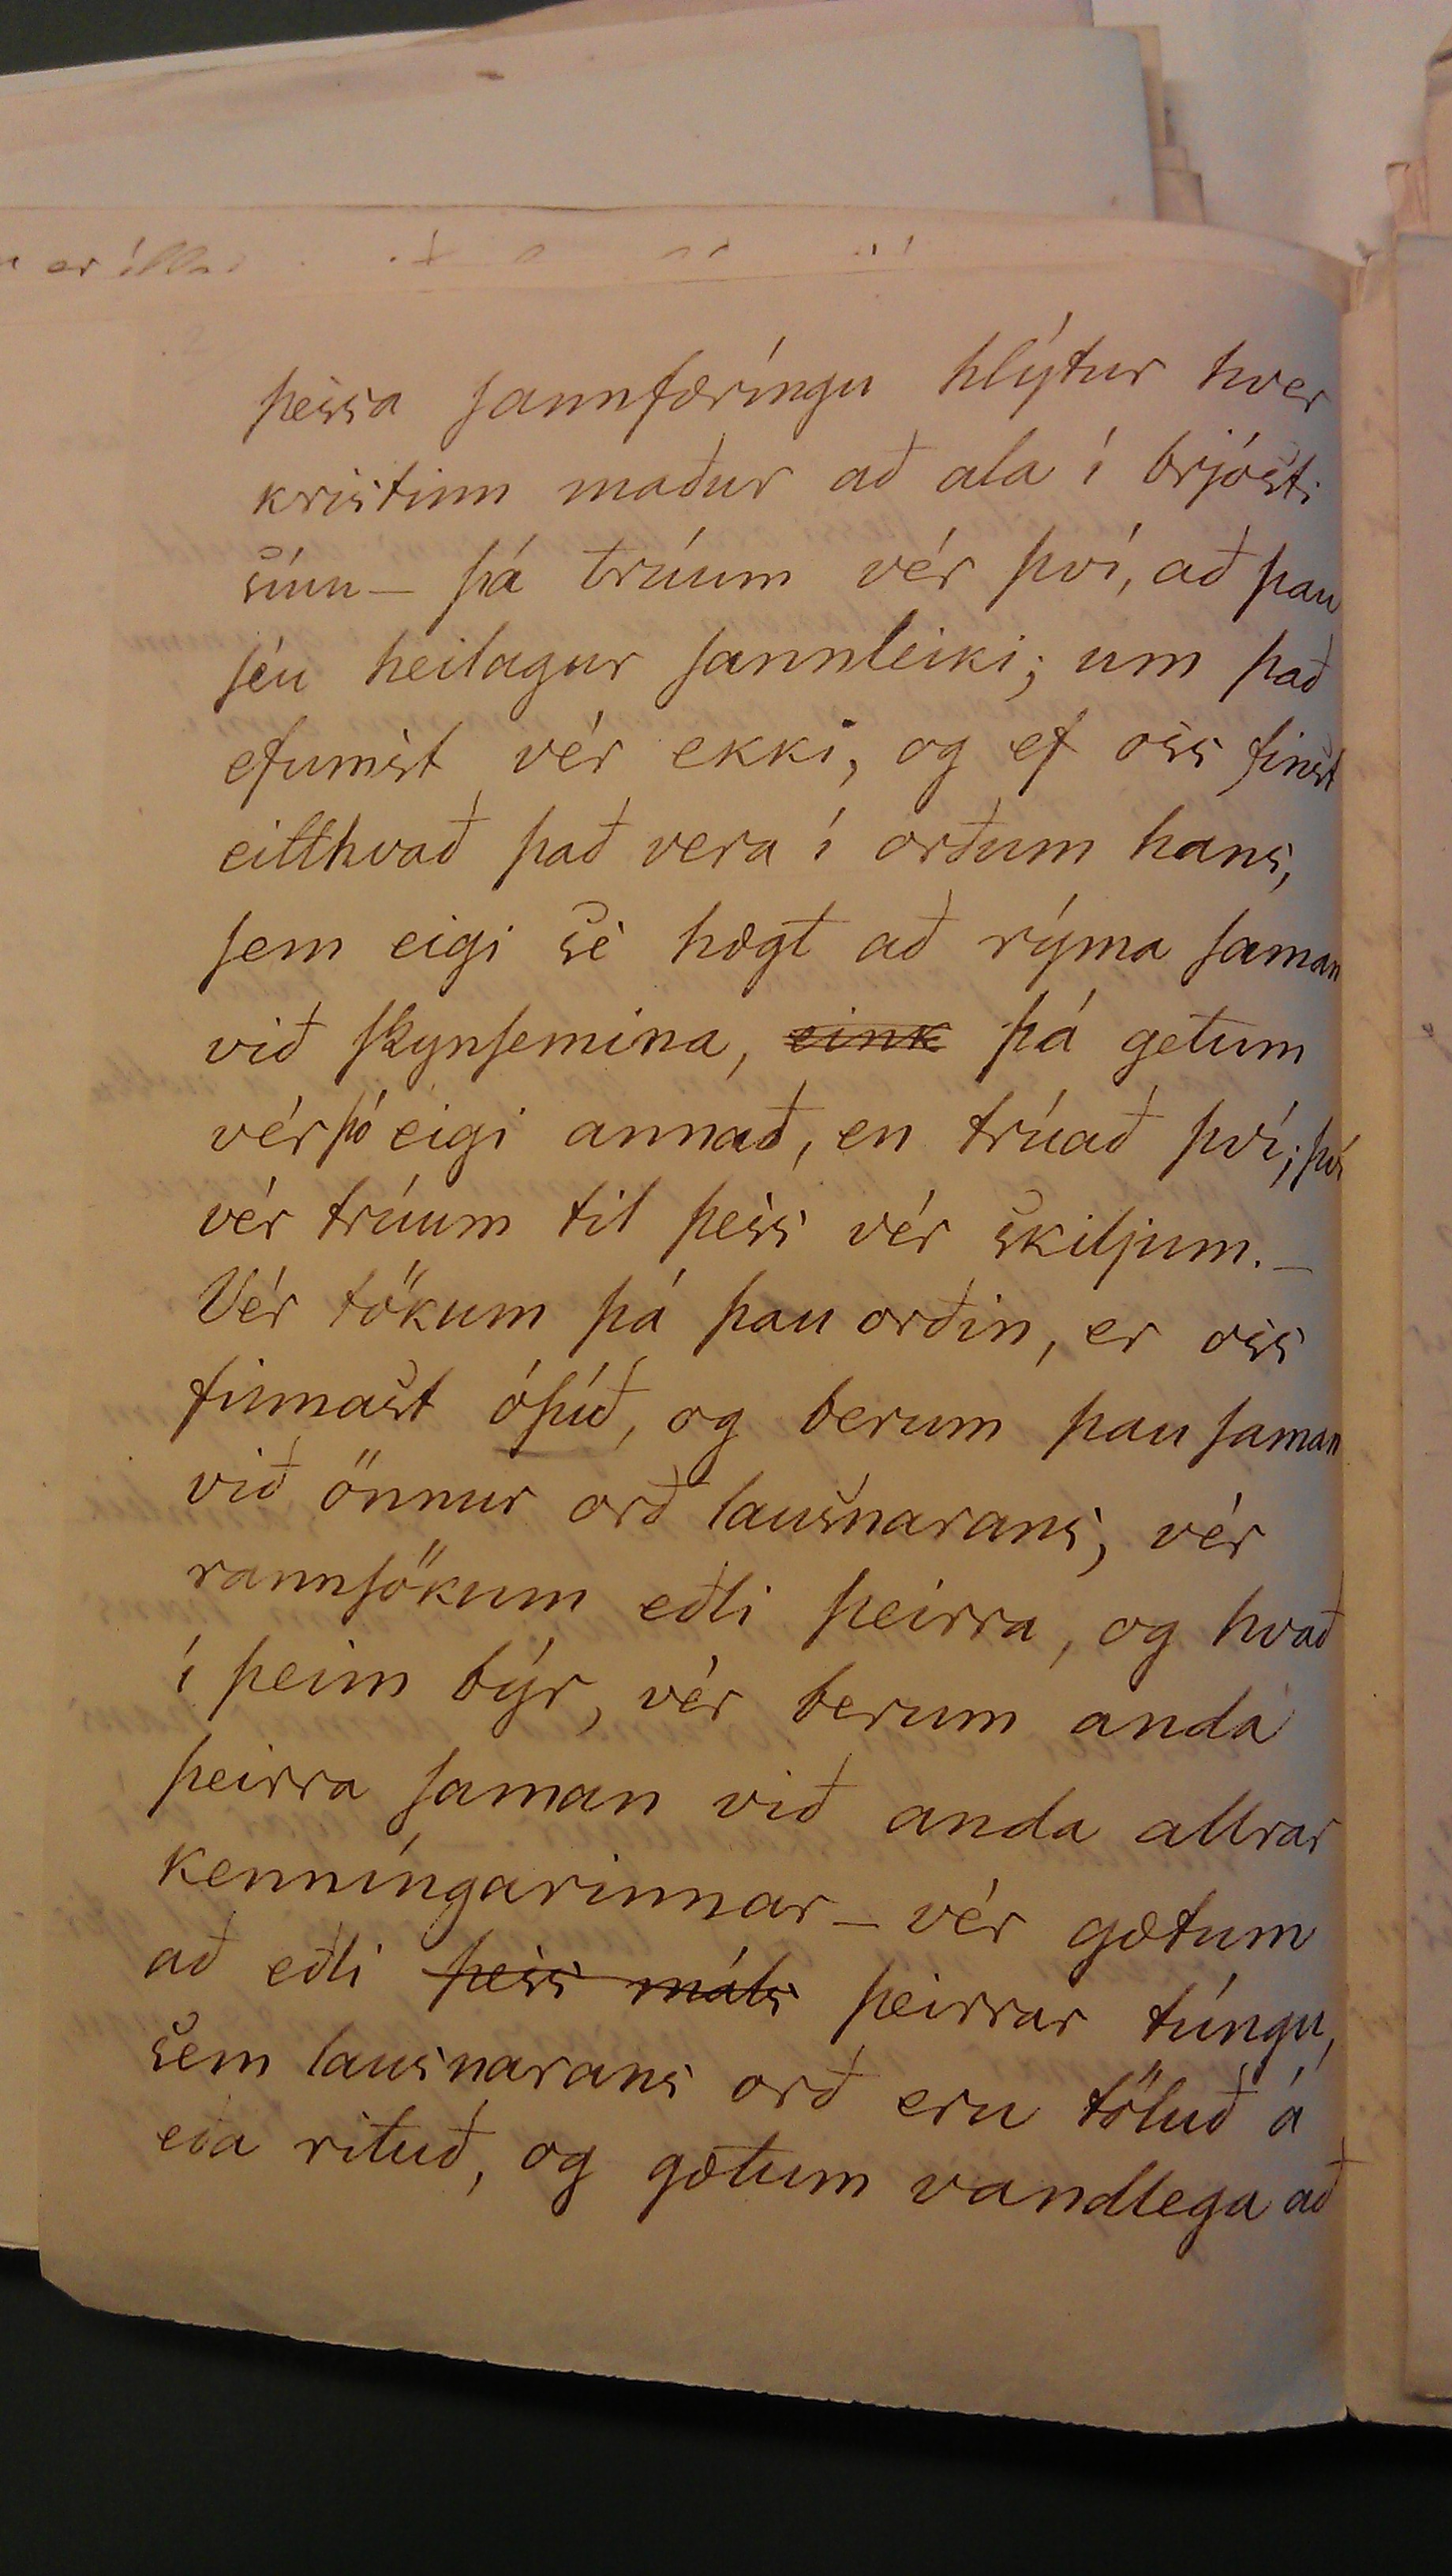 er illa
þessa sannfæríngu hlýtur hver
kristinn maður að ala í brjósti
sínu – þá trúum vér því, að þau
séu heilagur sannleiki; um það
efumst vér ekki, og ef oss finst
eitthvað það vera í orðum hans,
sem eigi sé hægt að rýma saman
við skynsemina, eink þá getum
vér þó eigi annað, en trúað því; því
vér trúum til þess vér skiljum. –
Vér tökum þá þau orðin, er oss
finnast óþíð, og berum þau saman
við önnur orð lausnarans, vér
rannsökum eðli þeirra, og hvað
í þeim býr, vér berum anda
þeirra saman við anda allrar
kenníngarinnar – vér gætum
að eðli þess máls þeirrar túngu,
sem lausnarans orð eru töluð á
eða rituð, og gætum vandlega að